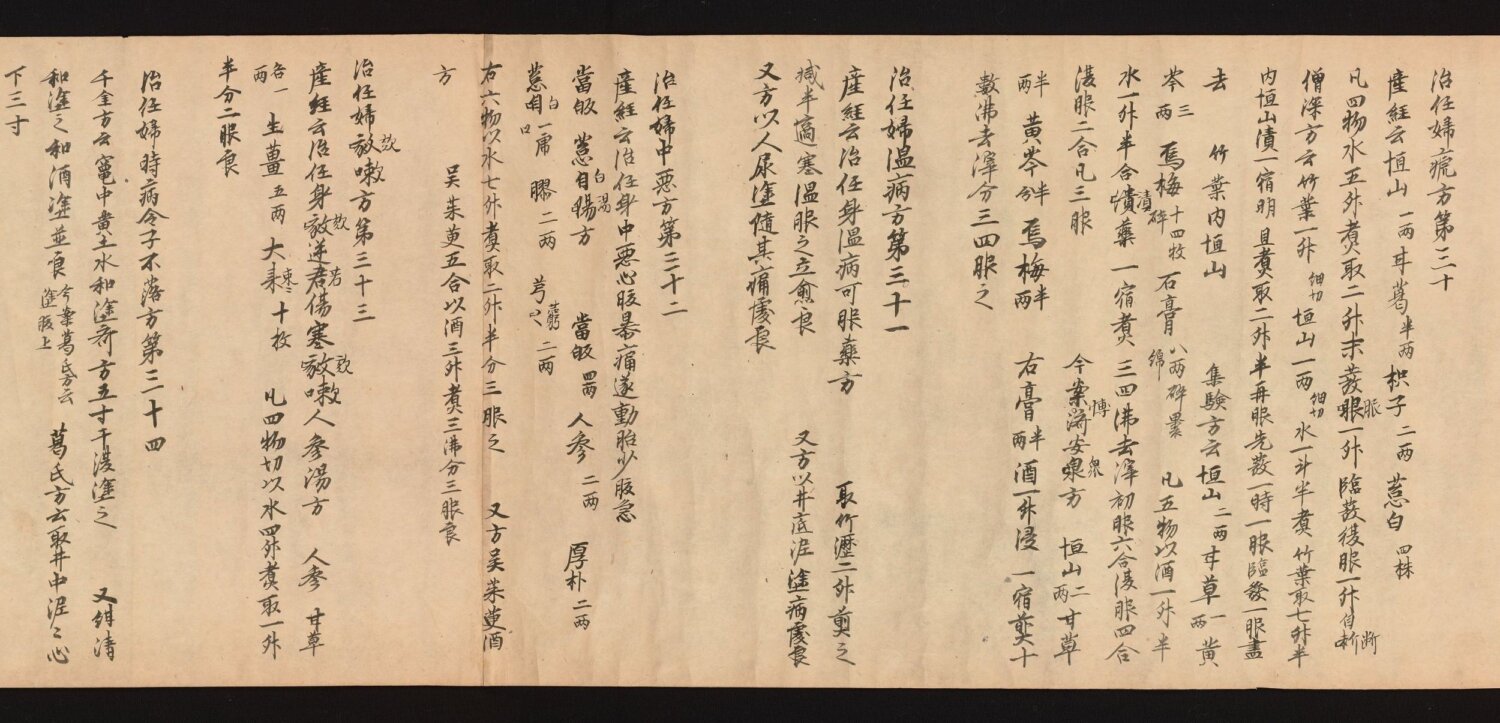 治任婦瘧方第三十
産経云恒山一両 甘葛半両 枳子二両 葱白四株
凡四物水五升煮取二升未發服一升臨發後服一升自断
僧深方云竹葉一升細切 恒山一両細切 水一斗半煮竹葉取七升半
内恒山漬一宿明旦煮取二升半再服先發一時一服臨發一服盡
去竹葉内恒山 集験方云恒山二両 甘草一両 黄
芩三両 烏梅十四枚碎 石膏八両碎綿裹 凡五物以酒一升半
水一升半合漬藥一宿煮三四沸去滓初服六合後服四合
後服二合凡三服 今案済安衆方 恒山二両 甘草
半両 黄芩半分 烏梅半両 石膏半両 酒一升浸一宿煎十
數沸去滓分三四服之
治任婦温病方第三十一
産経云治任身温病可服藥方 取竹瀝二升煎之
減半適寒温服之立愈良 又方以井底泥塗病處良
又方以人尿塗隨其痛處良
治任婦中悪方第三十二
産経云治任身中悪心腹暴痛遂動胎少腹急
當皈葱白湯方 當皈四両 人参二両 厚朴二両
葱白一虎口 膠二両 芎藭二両
右六物以水七升煮取二升半分三服之 又方呉茱萸酒
方 呉茱萸五合以酒三升煮三沸分三服良
治任婦欬嗽方第三十三
産経云治任身欬逆若傷寒欬嗽人参湯方 人参 甘草
各一両 生薑五両 大棗十枚 凡四物切以水四升煮取一升
半分二服良
治任婦時病令子不落方第三十四
千金方云竃中黄土水和塗臍方五寸干復塗之 又紺清
和塗之和酒塗並良今案葛氏方云塗腹上 葛氏方云取井中泥ミ心
下三寸